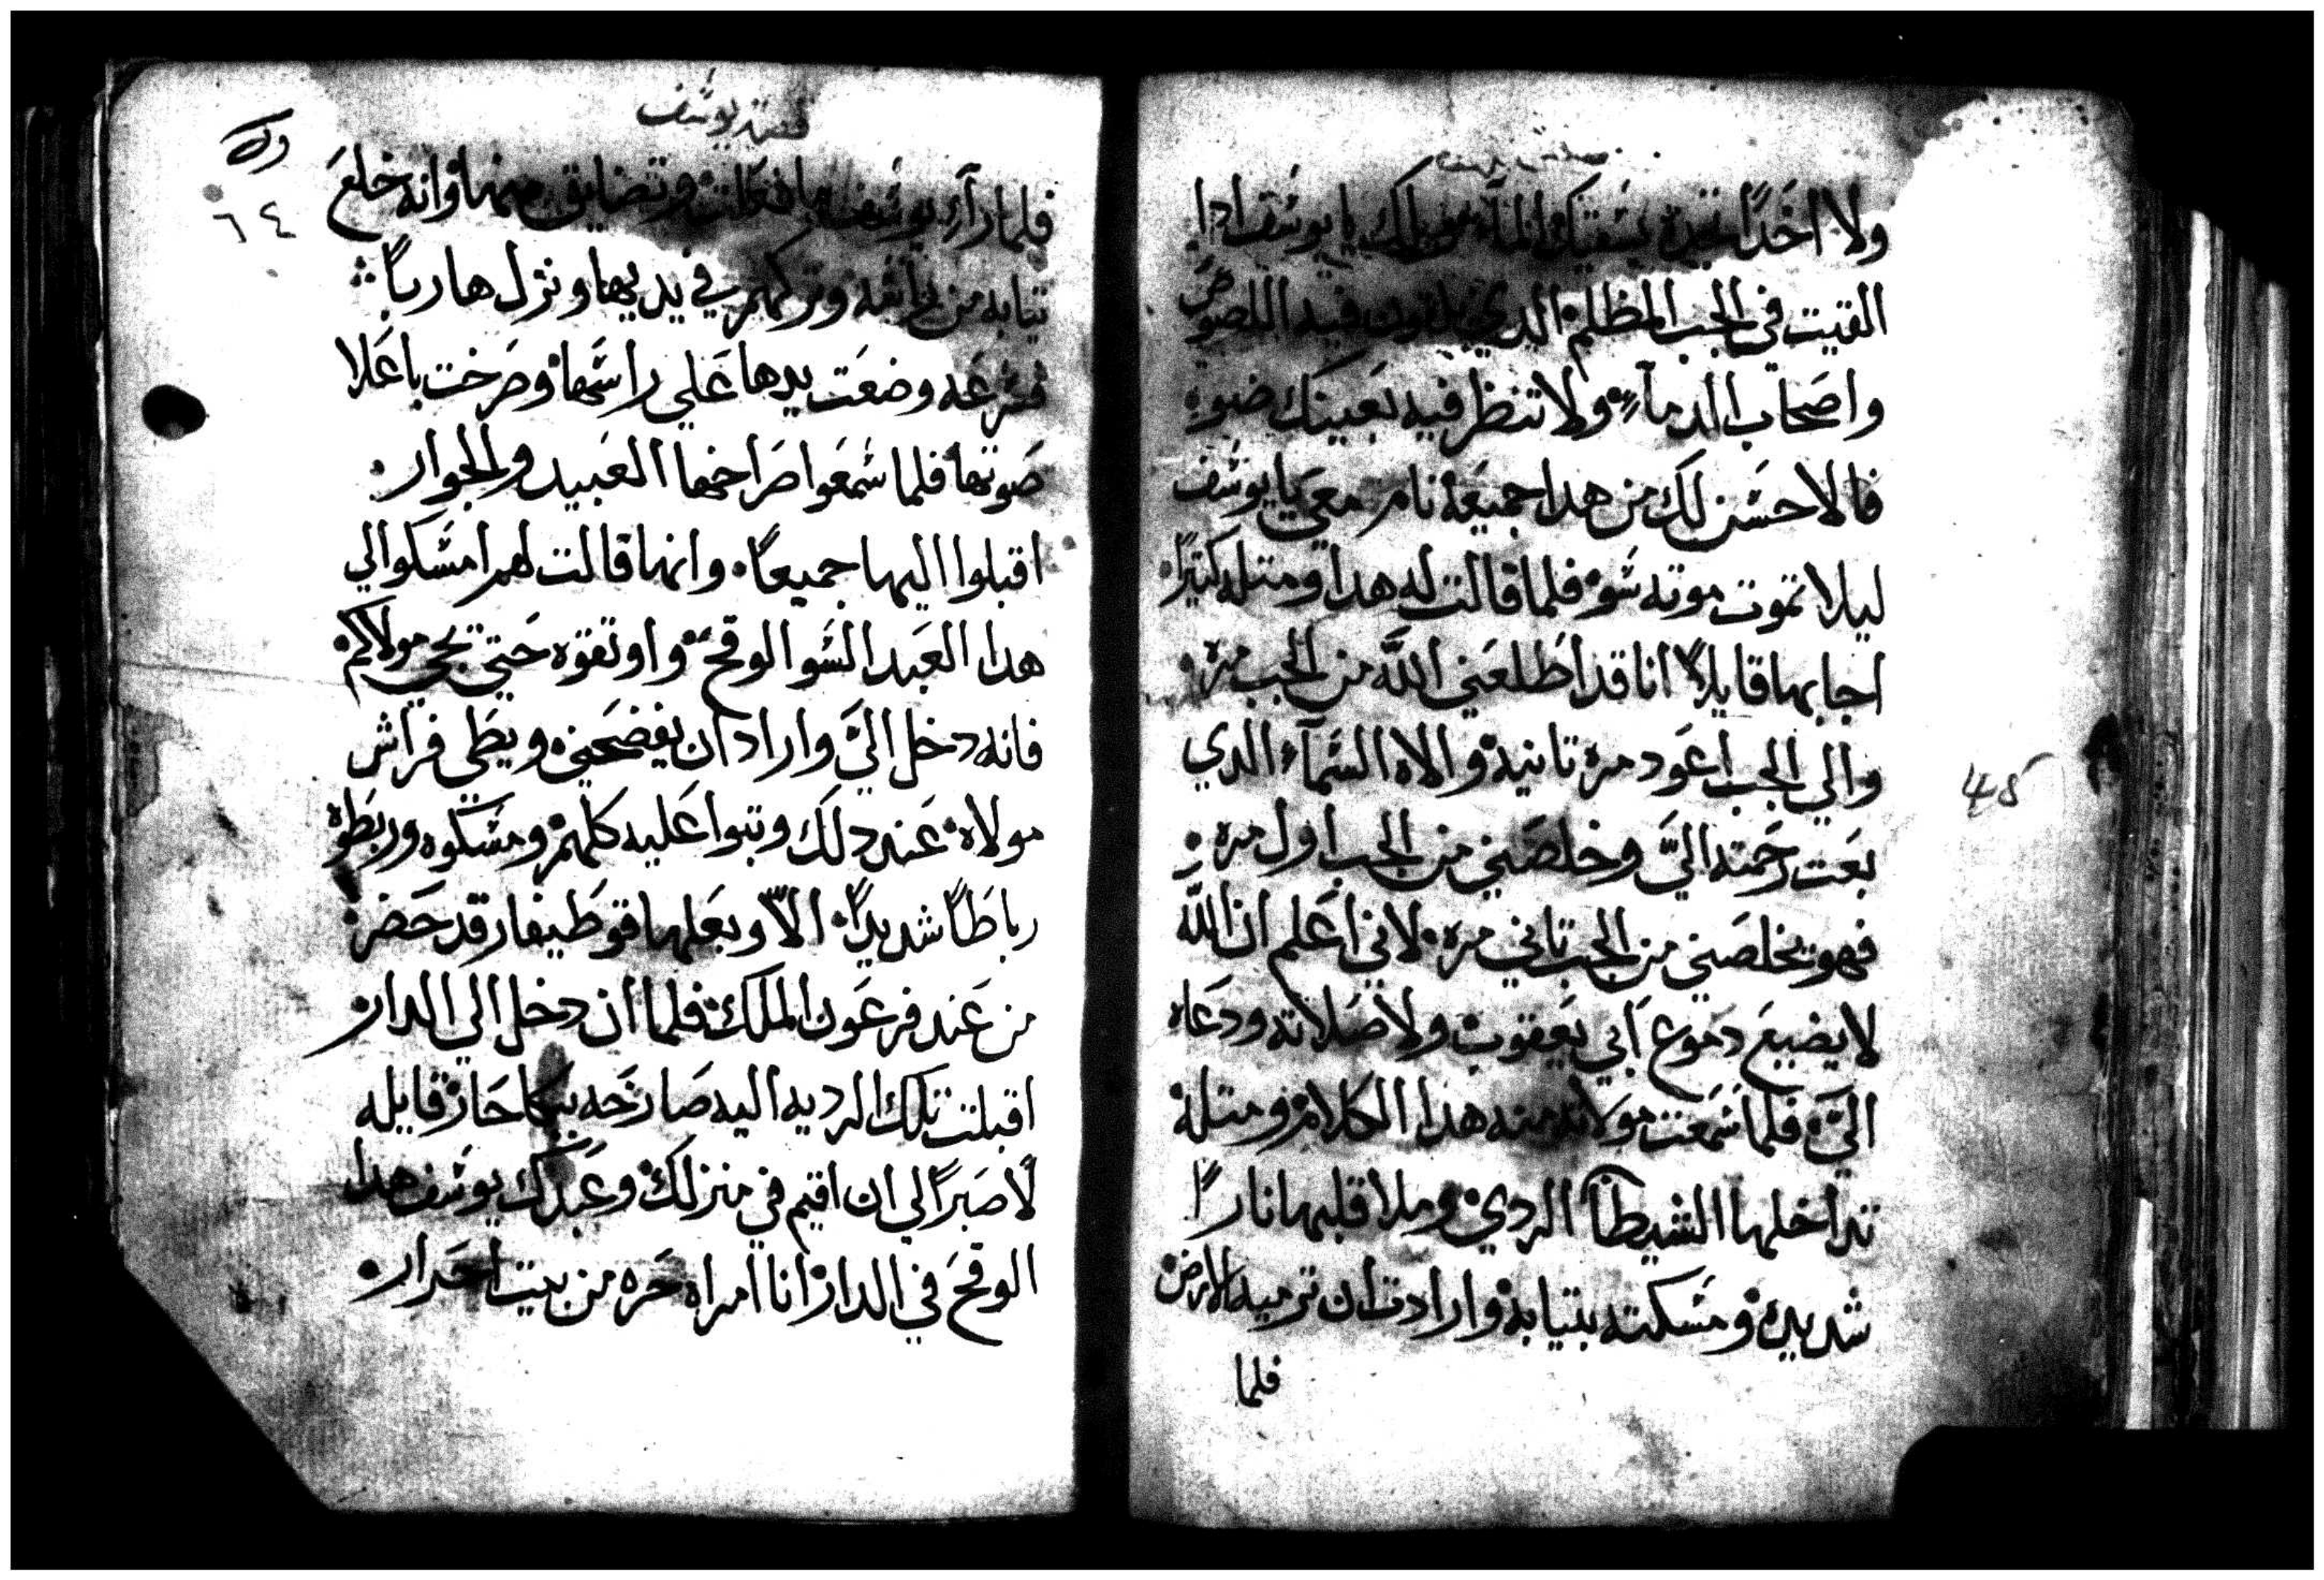 ولا احَدًا تجده يسَقيك المآء من يدك يا يوسَف ادا
القيت في الجب المظلم الدي يلقون فيه اللصوص
واصَحاب الدمآءِ ولا تنظر فيه بعَينك ضوءِ
فالاحسَن لك من هدا جميعَه نام معَي يا يوسَف
ليلا تموت موته سَو فلما قالت له هدا ومتله كتيرًا
اجابها قايلاً انا قد اطَلعَني اللّه من الجب مره
والي الجب اعَود مره تانيه والاه السَمآء الدي
بعَت رحَمته اليَّ وخلصَني من الجب اول مره
فهو يخلصَني من الجب تاني مره لاني اعَلم ان اللّه
لا يضيعَ دموع اَبي يعَقوب ولا صَلاته ودعَاه
اليَّ فلما سَمعَت مولاته منه هدا الكلام ومتله
تداخلها الشيطاَن الردي وملا قلبها نارًا
شديده ومسَكته بتيابه وارادت ان ترميه الارض
فلما
45
قصة يوسَف
٦٤
فلما رآءِ يوسَف وتضايق منها وانه خلعَ
تيابه من وتركهم في يديها ونزل هاربًا
فسرعَه وضعَت يدها عَلي راسَها وصَرخت باعَلا
صَوتها فلما سَمعَوا صَراخها العَبيد والجوار
اقبلوا اليها جميعًا وانها قالت لهم امسَكوا لي
هدا العَبد السَو الوقحَ واوتقوه حَتي يجي مولاكم
فانه دخل اليَّ واراد ان يفضحَني ويطَي فراش
مولاه عَند دلك وتبوا عَليه كلهم ومسَكوه وربطَوه
رباطًا شديدًا الاّ وبعَلها قوطَيفار قد حَضر
من عَند فرعَون الملك فلما ان دخل الي الدار
اقبلت تلك الرديه اليه صَارخَه ببكا حَار قايله
لا صَبرًا لي ان اقيم في منزلك وعَبدك يوسَف هدا
الوقحَ في الدار انا امراه حَره من بيت احَرار